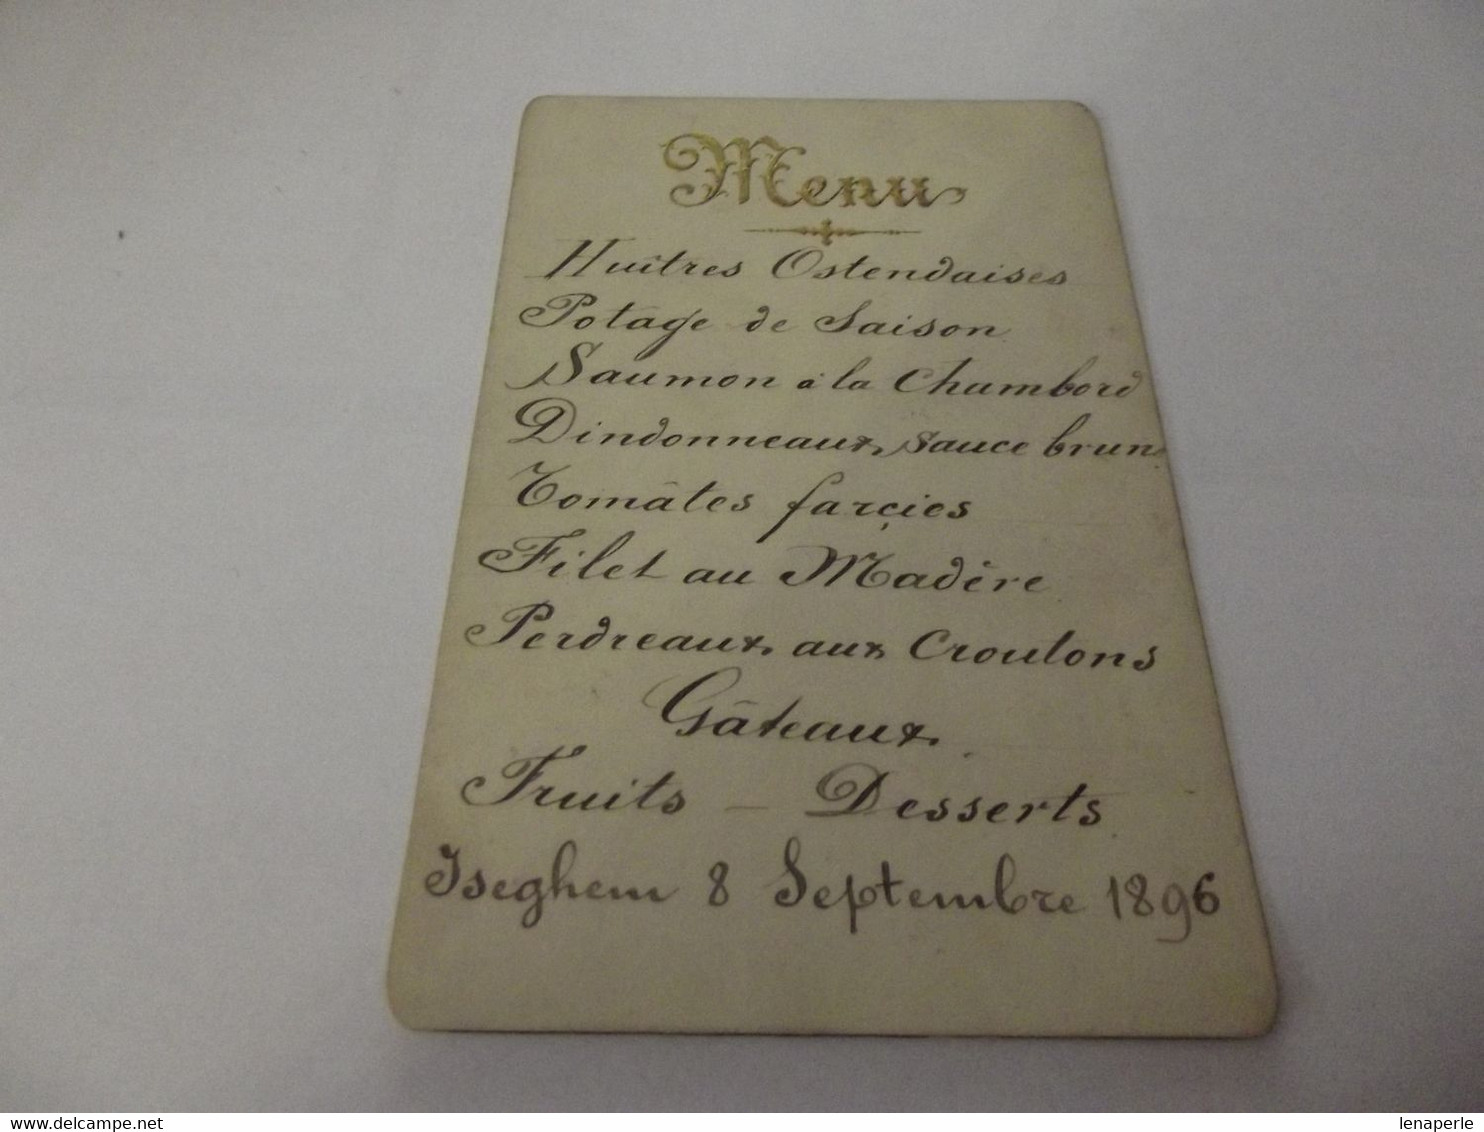 Menu
Huîtres Ostendaises
Potage de Saison
Saumon à la Chambord
Dindonneaux sauce brun
Tomâtes farçies
Filet au Madère
Perdreaux aux Croutons
Gâteaux
Fruits – Desserts
Iseghem 8 Septembre 1896
www.delcampe.net
lenaperle